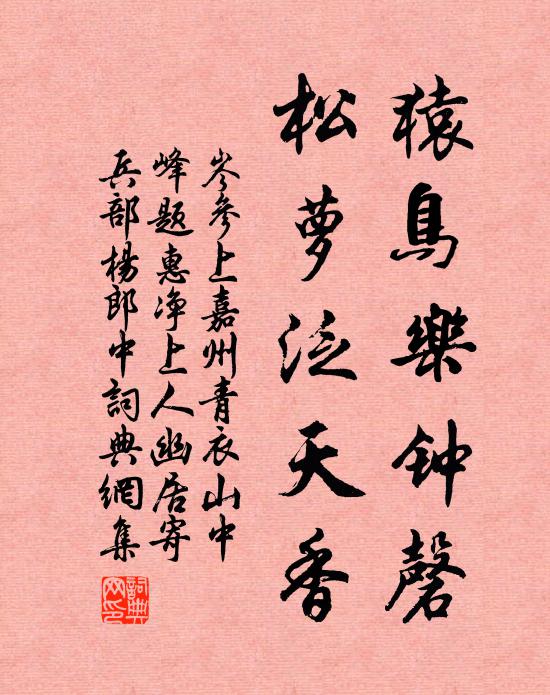 猿鳥樂钟磬
松萝泛天香
岑參上嘉州青衣山中
峰题惠净上人幽居寄
兵部楊郎中詞典網集
詞典
网印